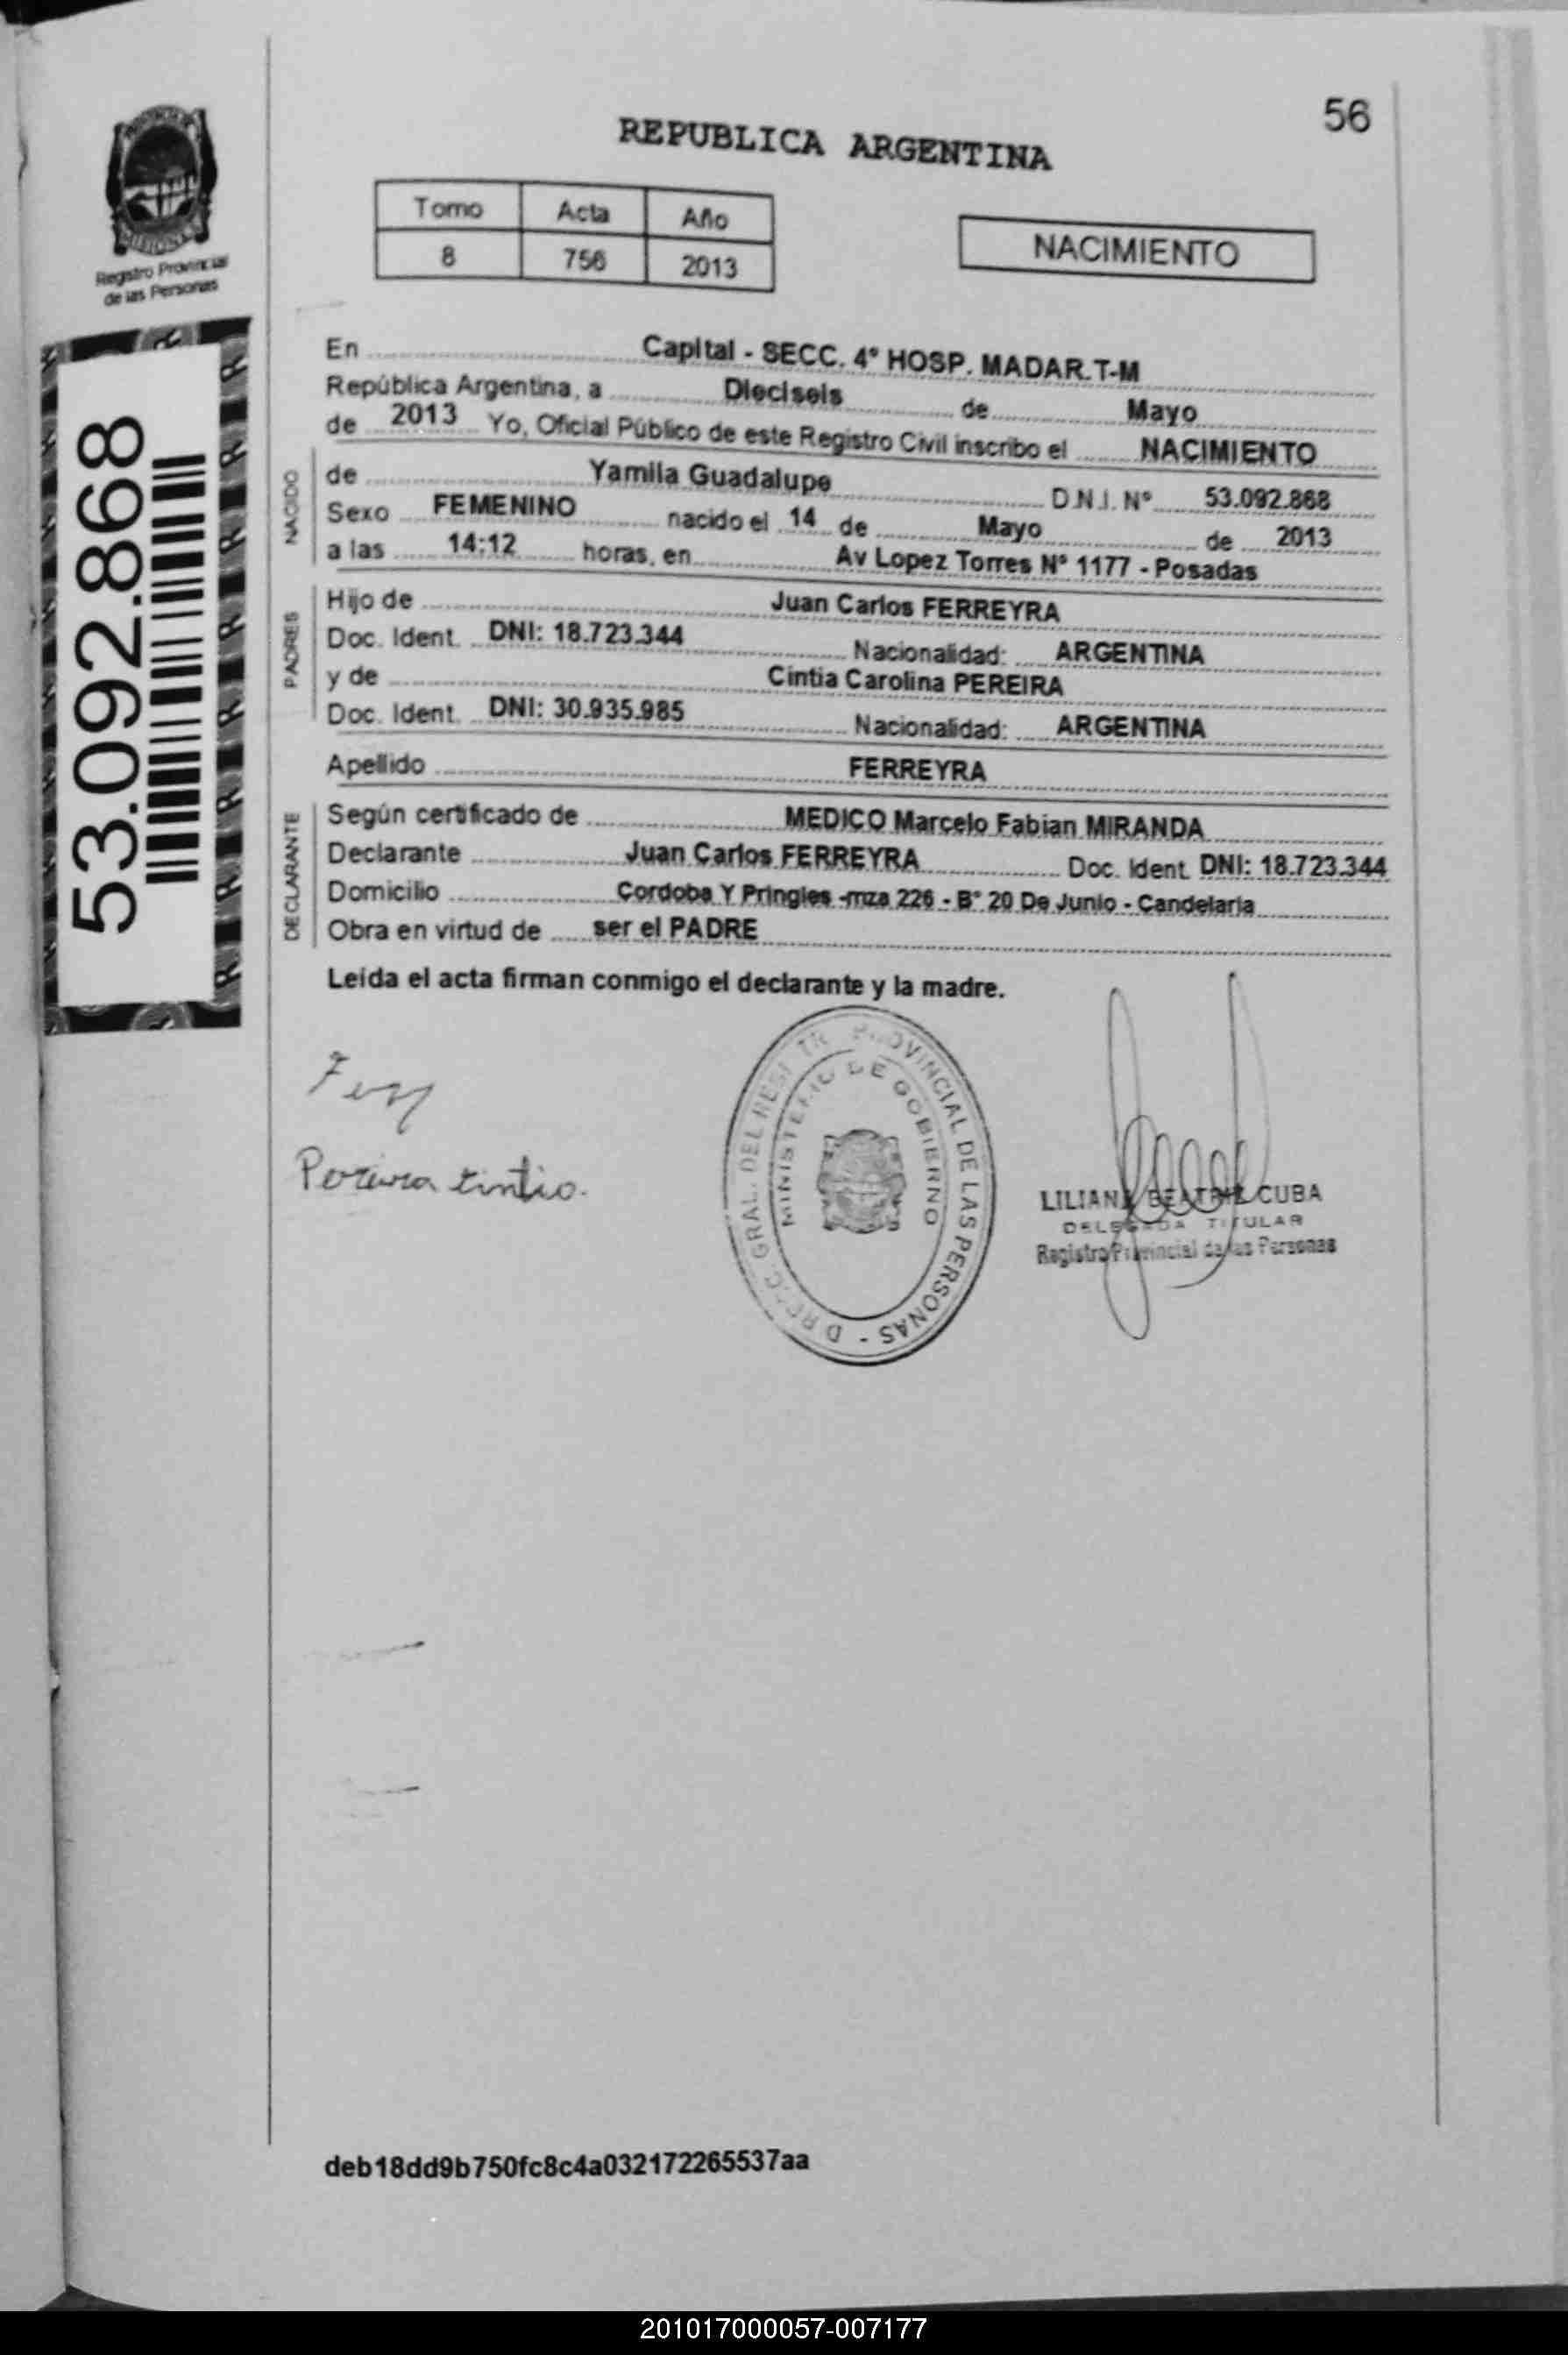 56
REPUBLICA ARGENTINA
Tomo Acta Año
8 756 2013
NACIMIENTO
PROVINCIA DE
MISIONES
Registro Provincial
de las Personas
53.092.868
En Capital - SECC. 4° HOSP. MADAR.T-M
República Argentina, a Dieciseis de Mayo
de 2013 Yo, Oficial Público de este Registro Civil inscribo el NACIMIENTO
NACIDO
de Yamila Guadalupe D.N.I. N° 53.092.868
Sexo FEMENINO nacido el 14 de Mayo de 2013
a las 14:12 horas, en Av Lopez Torres N° 1177 - Posadas
PADRES
Hijo de Juan Carlos FERREYRA
Doc. Ident. DNI: 18.723.344 Nacionalidad: ARGENTINA
y de Cintia Carolina PEREIRA
Doc. Ident. DNI: 30.935.985 Nacionalidad: ARGENTINA
Apellido FERREYRA
DECLARANTE
Según certificado de MEDICO Marcelo Fabian MIRANDA
Declarante Juan Carlos FERREYRA Doc. Ident. DNI: 18.723.344
Domicilio Cordoba Y Pringles -mza 226 - B° 20 De Junio - Candelaria
Obra en virtud de ser el PADRE
Leída el acta firman conmigo el declarante y la madre.
PROVINCIAL DE LAS PERSONAS -
MINISTERIO DE GOBIERNO
LILIANA BEATRIZ CUBA
DELEGADA TITULAR
Registro Provincial de las Personas
deb18dd9b750fc8c4a032172265537aa
201017000057-007177